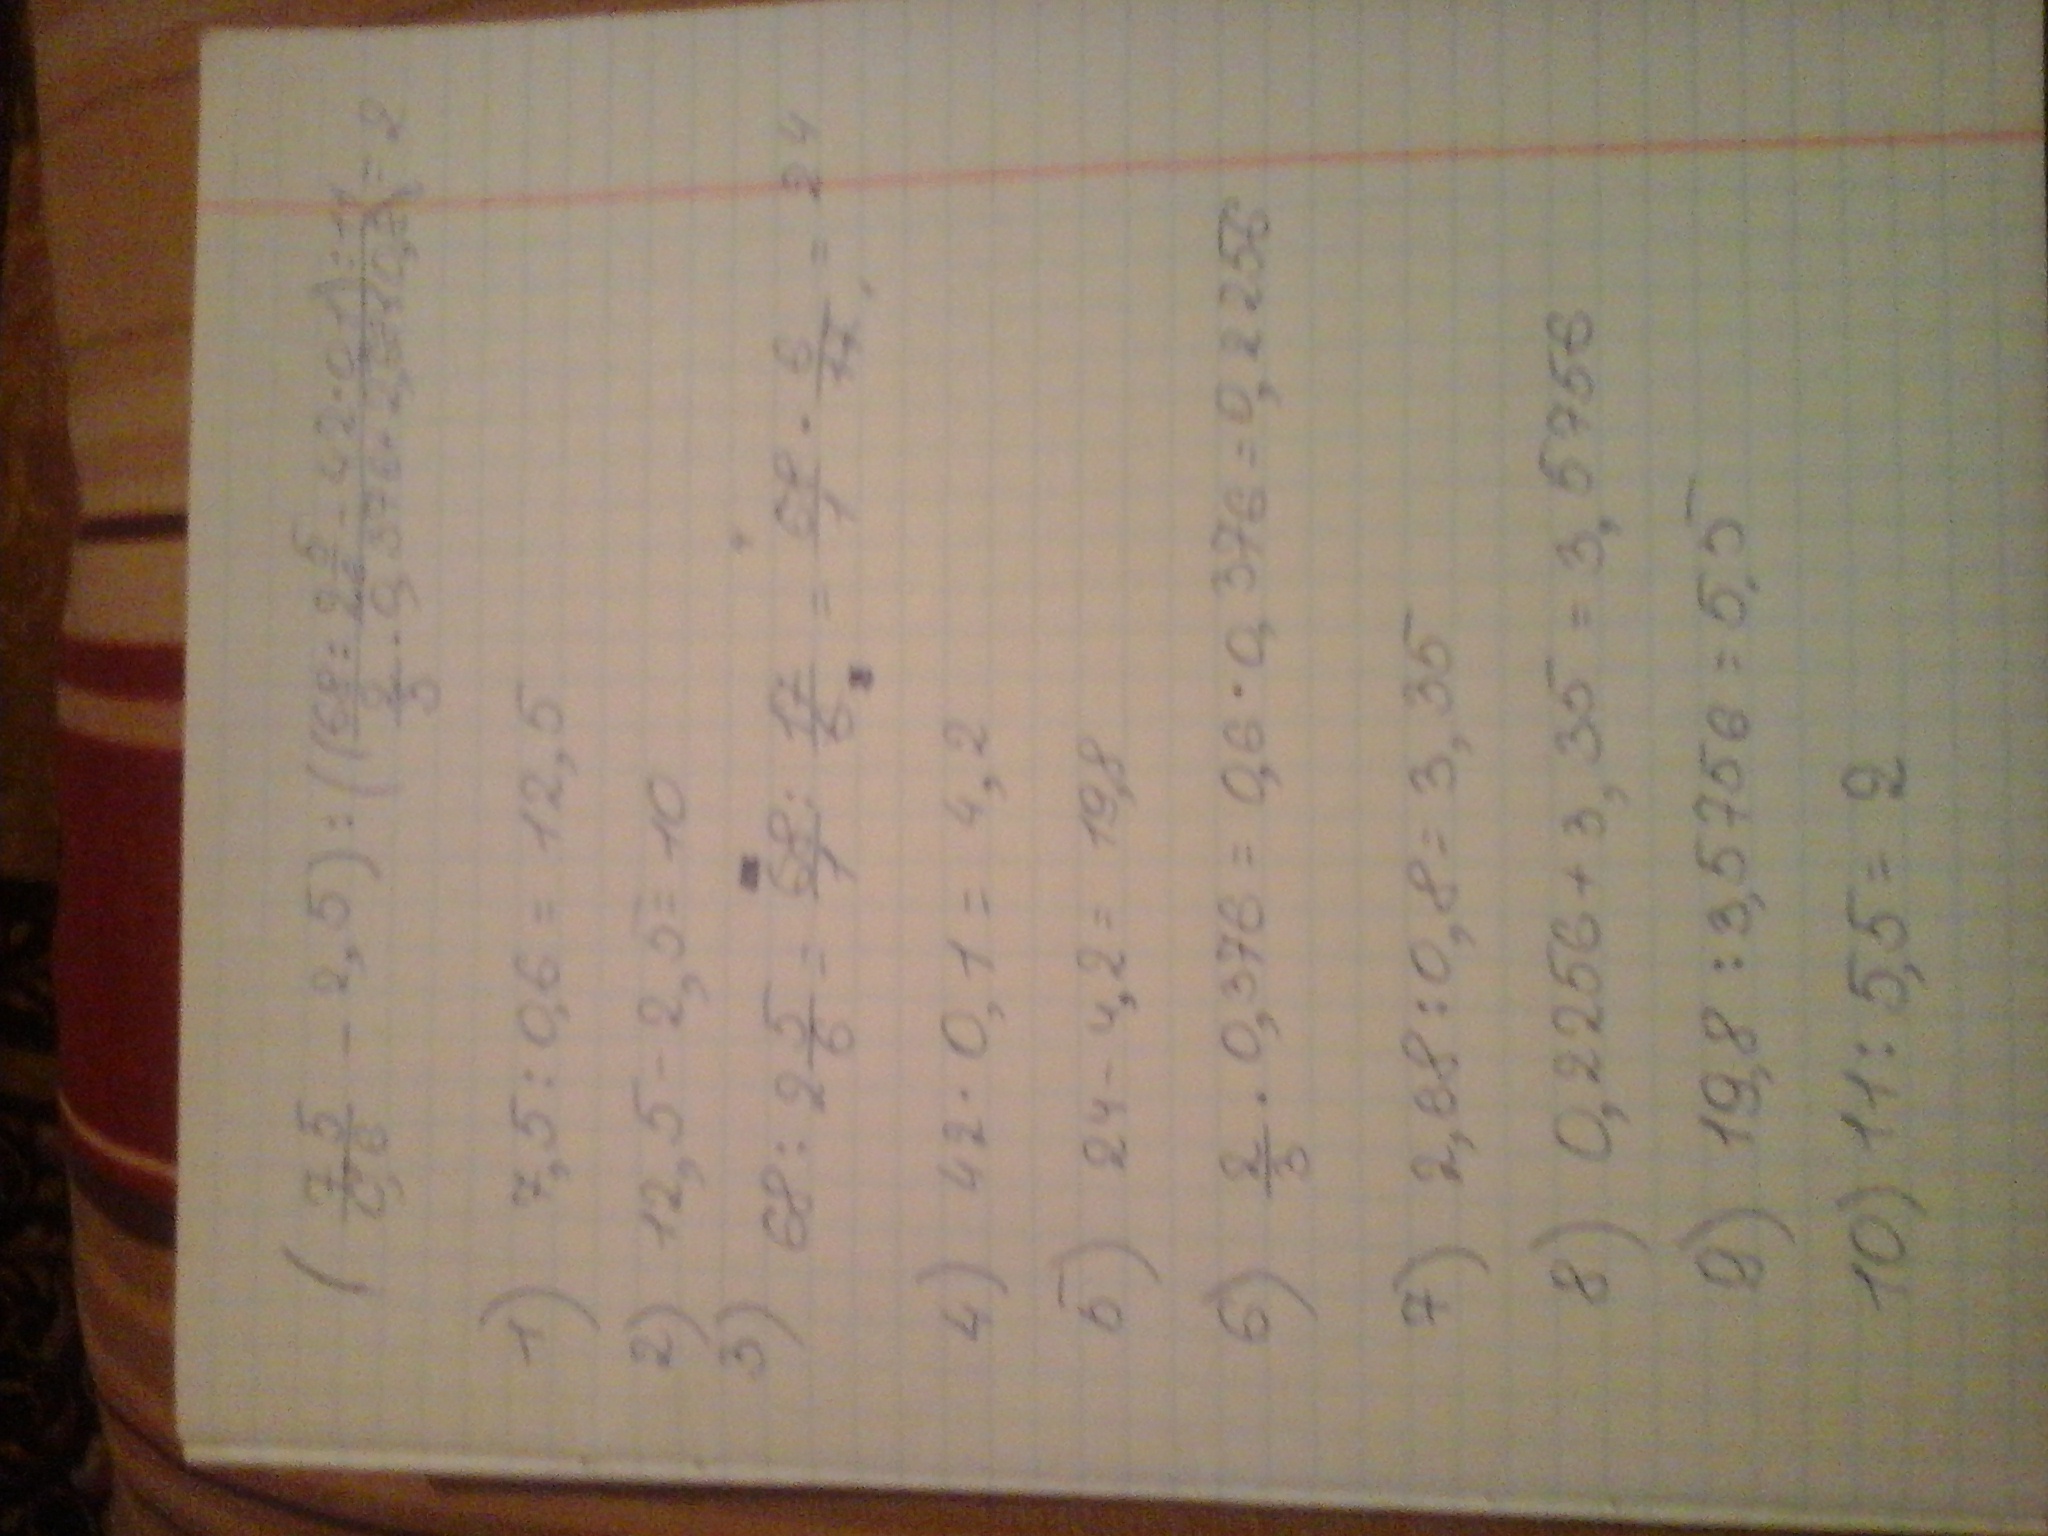 ( 7,5/0,6 - 2,5) : ((68 : 2 5/6 - 42 · 0,1) : 11 / 2/3 · 0,376 + 2,68 : 0,8) = 2
1) 7,5 : 0,6 = 12,5
2) 12,5 - 2,5 = 10
3) 68 : 2 5/6 = 68/1 : 17/6 = 68/1 · 6/17 = 24
4) 42 · 0,1 = 4,2
5) 24 - 4,2 = 19,8
6) 2/3 · 0,376 = 0,6 · 0,376 = 0,2256
7) 2,68 : 0,8 = 3,35
8) 0,2256 + 3,35 = 3,5756
9) 19,8 : 3,5756 = 5,5
10) 11 : 5,5 = 2